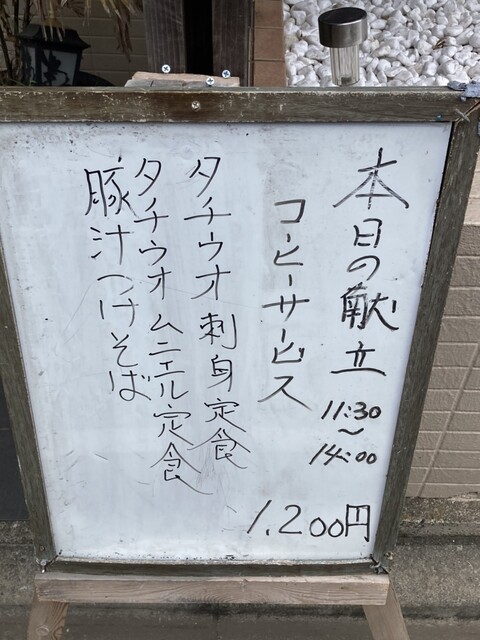 本日の献立
11:30
〜
14:00
コーヒーサービス
タチウオ刺身定食
タチウオムニエル定食
豚汁つけそば
1.200円